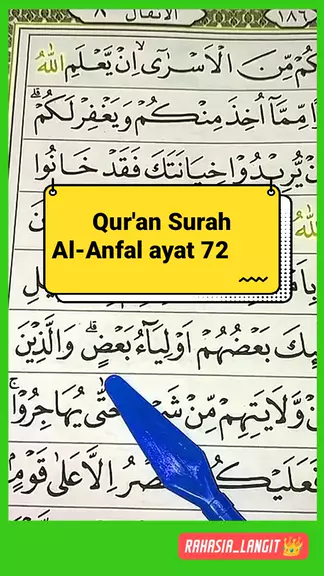 ١٨٦ الانفال ٨
كُمْ مِّنَ الْاَسْرٰٓىۙ اِنْ يَّعْلَمِ اللّٰهُ
ا مِّمَّآ اُخِذَ مِنْكُمْ وَيَغْفِرْ لَكُمْۗ
نْ يُّرِيْدُوْا خِيَانَتَكَ فَقَدْ خَانُوا
اللّٰهُ
Qur'an Surah
Al-Anfal ayat 72
بِاَم
يْلِ
ىِٕكَ بَعْضُهُمْ اَوْلِيَاۤءُ بَعْضٍۗ وَالَّذِيْنَ
نْ وَّلَايَتِهِمْ مِّنْ شَيْ حَتّٰى يُهَاجِرُوْاۚ
فَعَلَيْكُ صْرُ اِلَّا عَلٰى قَوْمٍۢ
RAHASIA_LANGIT